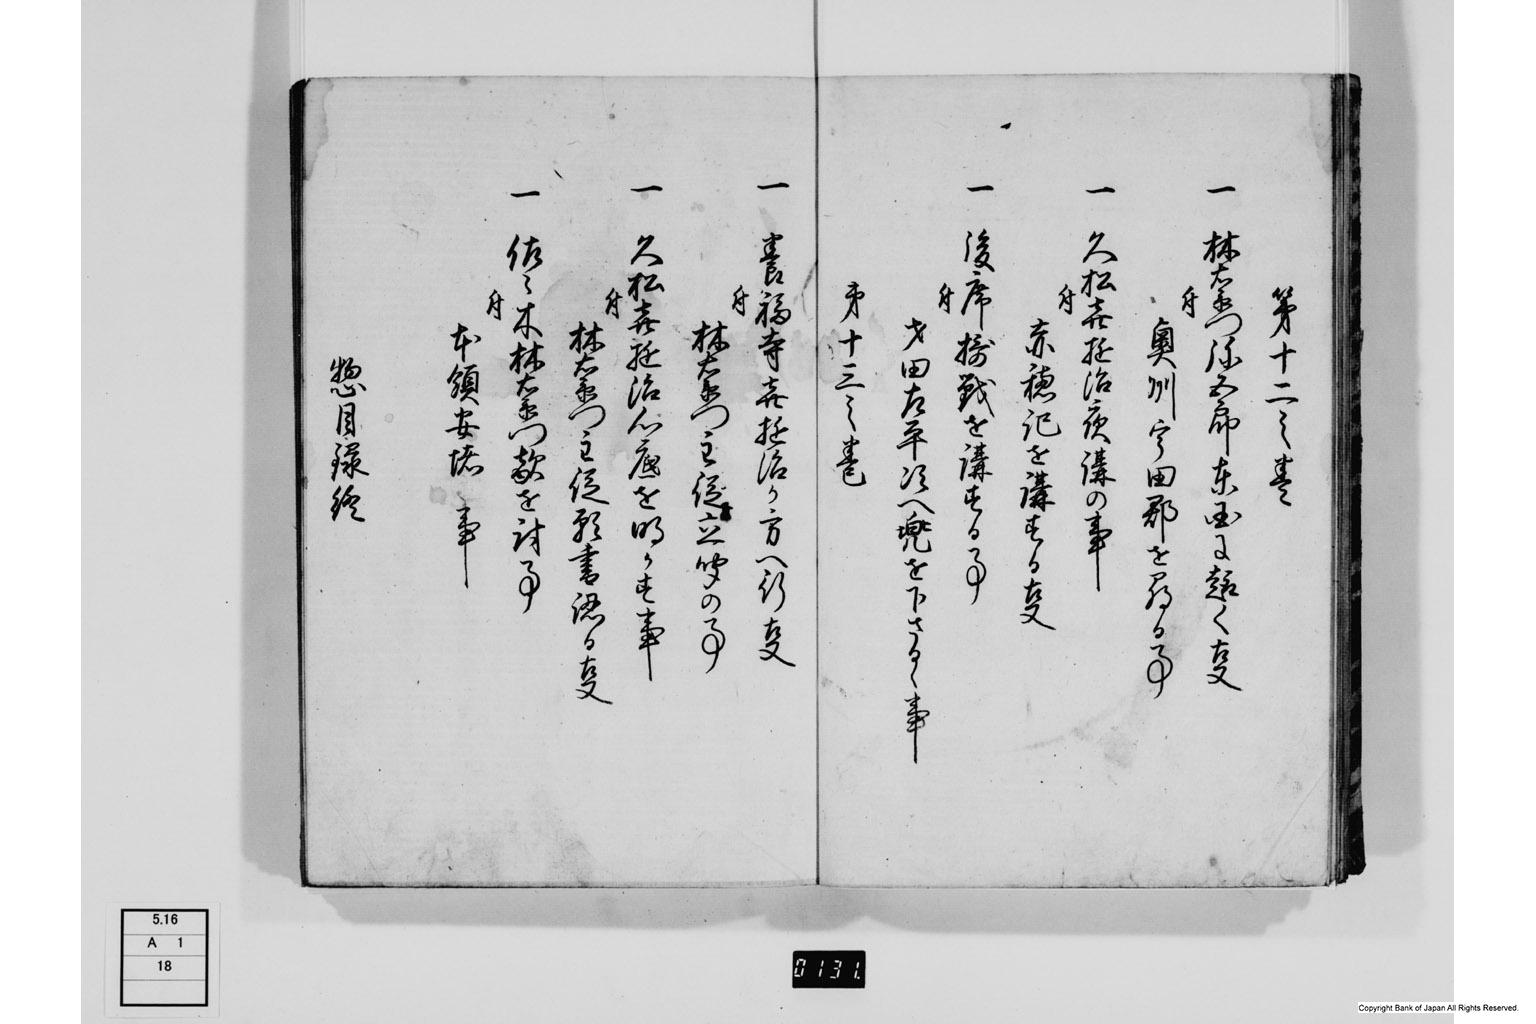 第十二之巻
一 林右衛門弥五郎東国に趣く事
附 奥州宇田郡を尋る事
一 久松喜遊治夜講の事
附 赤穂記を講する事
一 後席掛戦を講する事
附 才田左平次へ兜を下さるゝ事
第十三之巻
一 養福寺喜遊治か方へ行事
附 林右衛門主従立聞の事
一 久松喜遊治心底を明かす事
附 林右衛門主従願書認る事
一 佐々木林右衛門敵を討事
附 本領安堵之事
惣目録終
5.16
A 1
18
0131.
Copyright Bank of Japan All Rights Reserved.